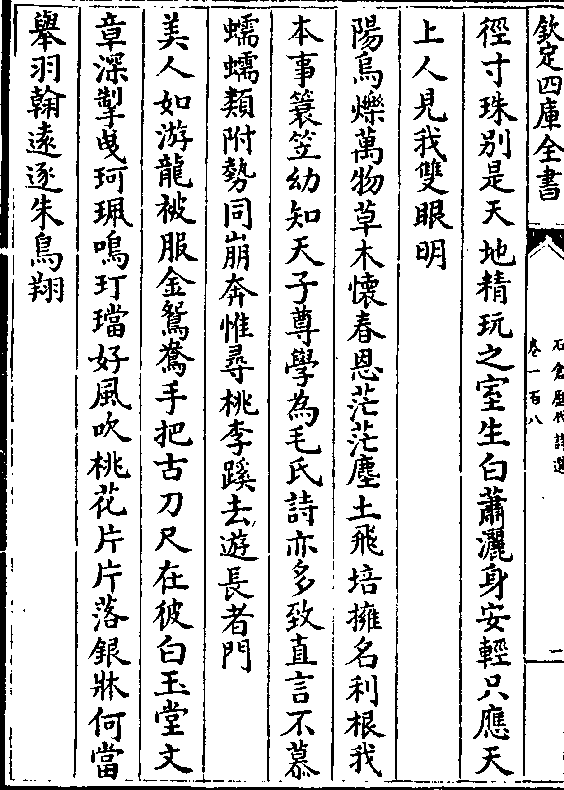 欽定四庫全書
石倉歷代詩選
卷一百八
二
徑寸珠别是天地精玩之室生白蕭灑身安輕只應天
上人見我雙眼明
陽烏爍萬物草木懷春恩茫茫塵土飛培擁名利根我
本事簑笠幼知天子尊學為毛氏詩亦多致直言不慕
蠕蠕類附勢同崩奔惟尋桃李蹊去遊長者門
美人如游龍被服金鴛鴦手把古刀尺在彼白玉堂文
章深掣曵珂珮鳴玎璫好風吹桃花片片落銀牀何當
舉羽翰遠逐朱鳥翔